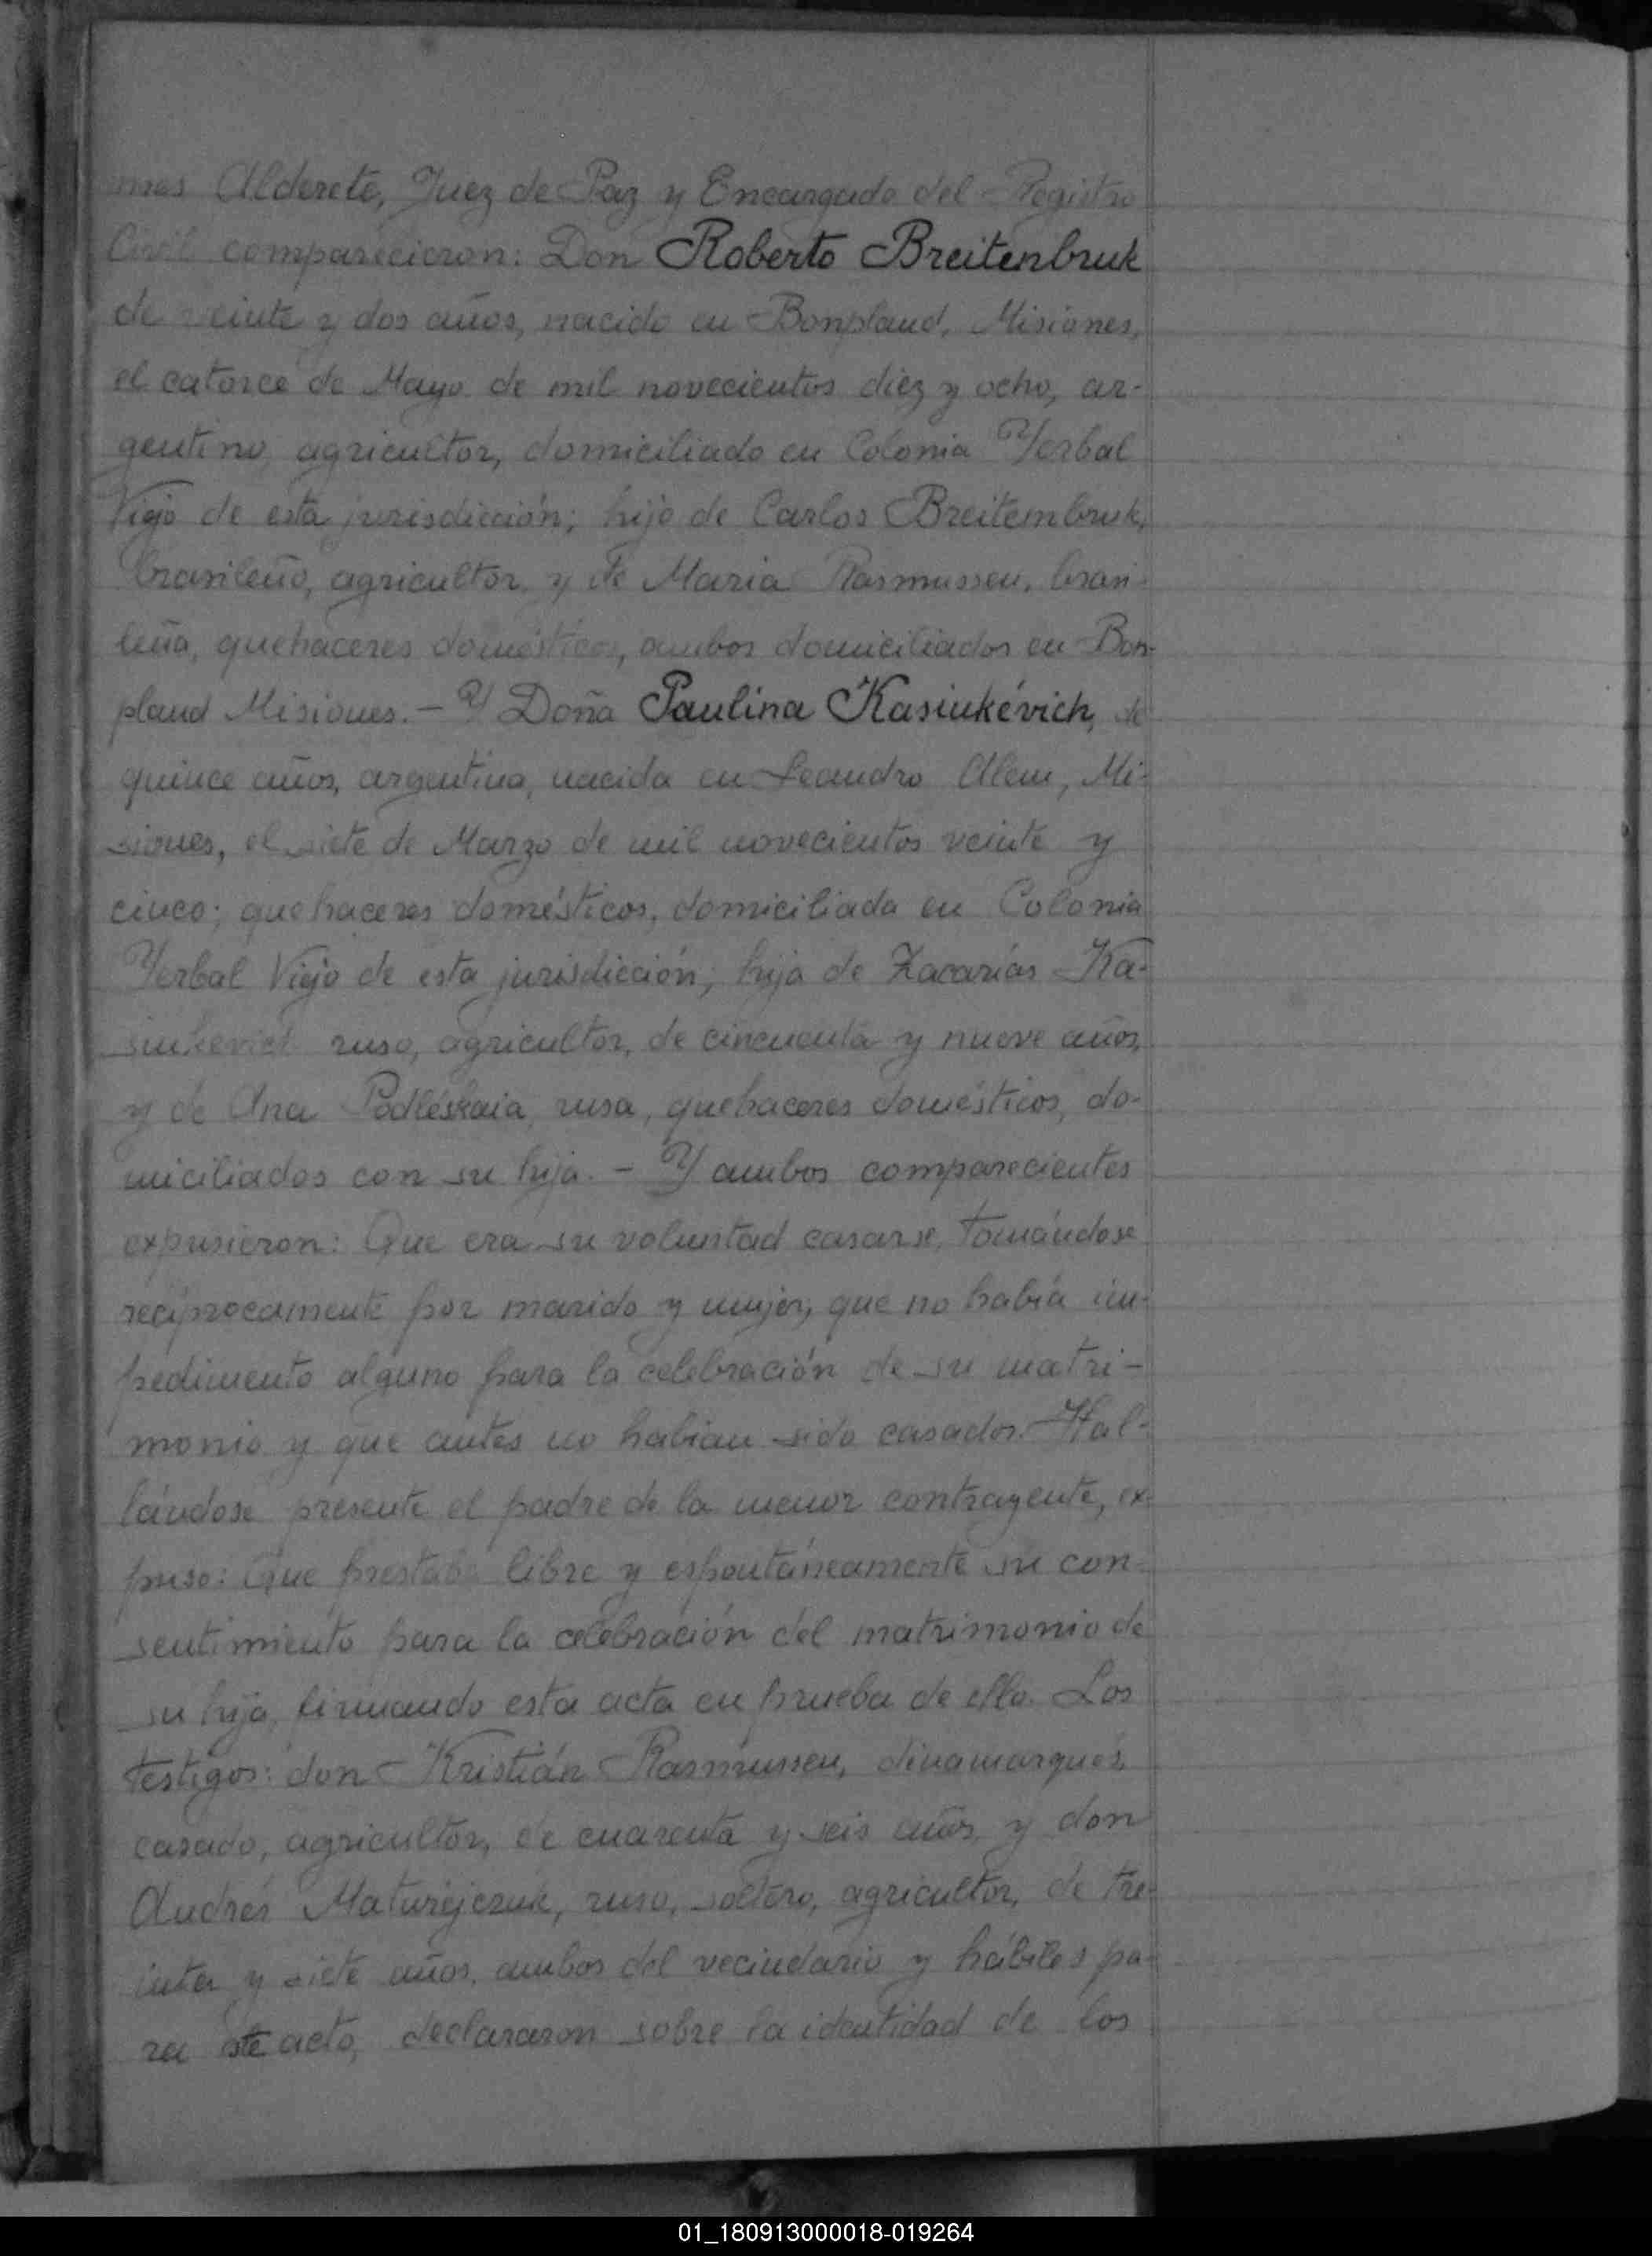 mes Alderete, Juez de Paz y Encargado del Registro
Civil comparecieron: Don Roberto Breitenbruk
de veinte y dos años, nacido en Bonpland, Misiones,
el catorce de Mayo de mil novecientos diez y ocho, ar-
gentino, agricultor, domiciliado en Colonia Yerbal
Viejo de esta jurisdicción; hijo de Carlos Breitembruk,
brasileño, agricultor, y de Maria Rasmussen, brasi-
leña, quehaceres domésticos, ambos domiciliados en Bon-
pland Misiones. - Y Doña Paulina Kasiukévich, de
quince años, argentina, nacida en Leandro Alem, Mi-
siones, el siete de Marzo de mil novecientos veinte y
cinco; quehaceres domésticos, domiciliada en Colonia
Yerbal Viejo de esta jurisdicción; hija de Zacarías Ka-
siukevich ruso, agricultor, de cincuenta y nueve años,
y de Ana Podléskaia, rusa, quehaceres domésticos, do-
miciliados con su hija. - Y ambos comparecientes
expusieron: Que era su voluntad casarse, tomándose
recíprocamente por marido y mujer, que no había im-
pedimento alguno para la celebración de su matri-
monio y que antes no habian sido casados. Hal-
lándose presente el padre de la menor contrayente, ex-
puso: Que prestaba libre y espontáneamente su con-
sentimiento para la celebración del matrimonio de
su hija, firmando esta acta en prueba de ello. Los
testigos: don Kristián Rasmussen, dinamarqués,
casado, agricultor, de cuarenta y seis años, y don
Andrés Maturéjczuk, ruso, soltero, agricultor, de tre-
inta y siete años, ambos del vecindario y hábiles pa-
ra este acto, declararon sobre la identidad de los
01_180913000018-019264